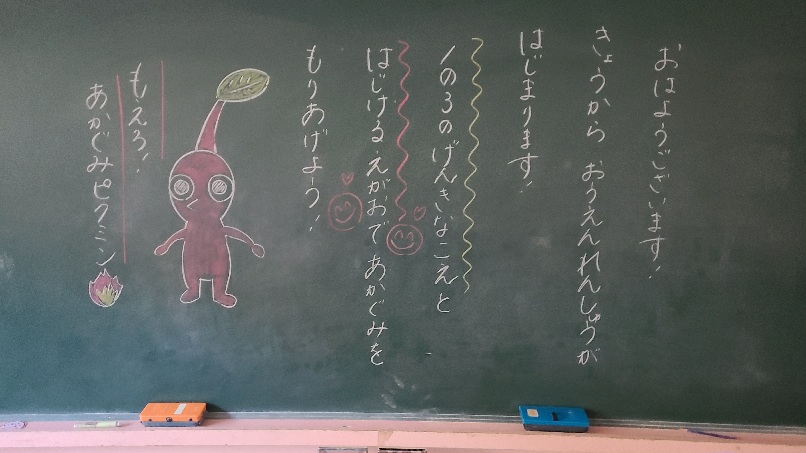 おはようございます!
きょうから おうえんれんしゅうが
はじまります!
1の3のげんきなこえと
はじけるえがおであかぐみを
もりあげよう!
もえろ!
あかぐみピクミン